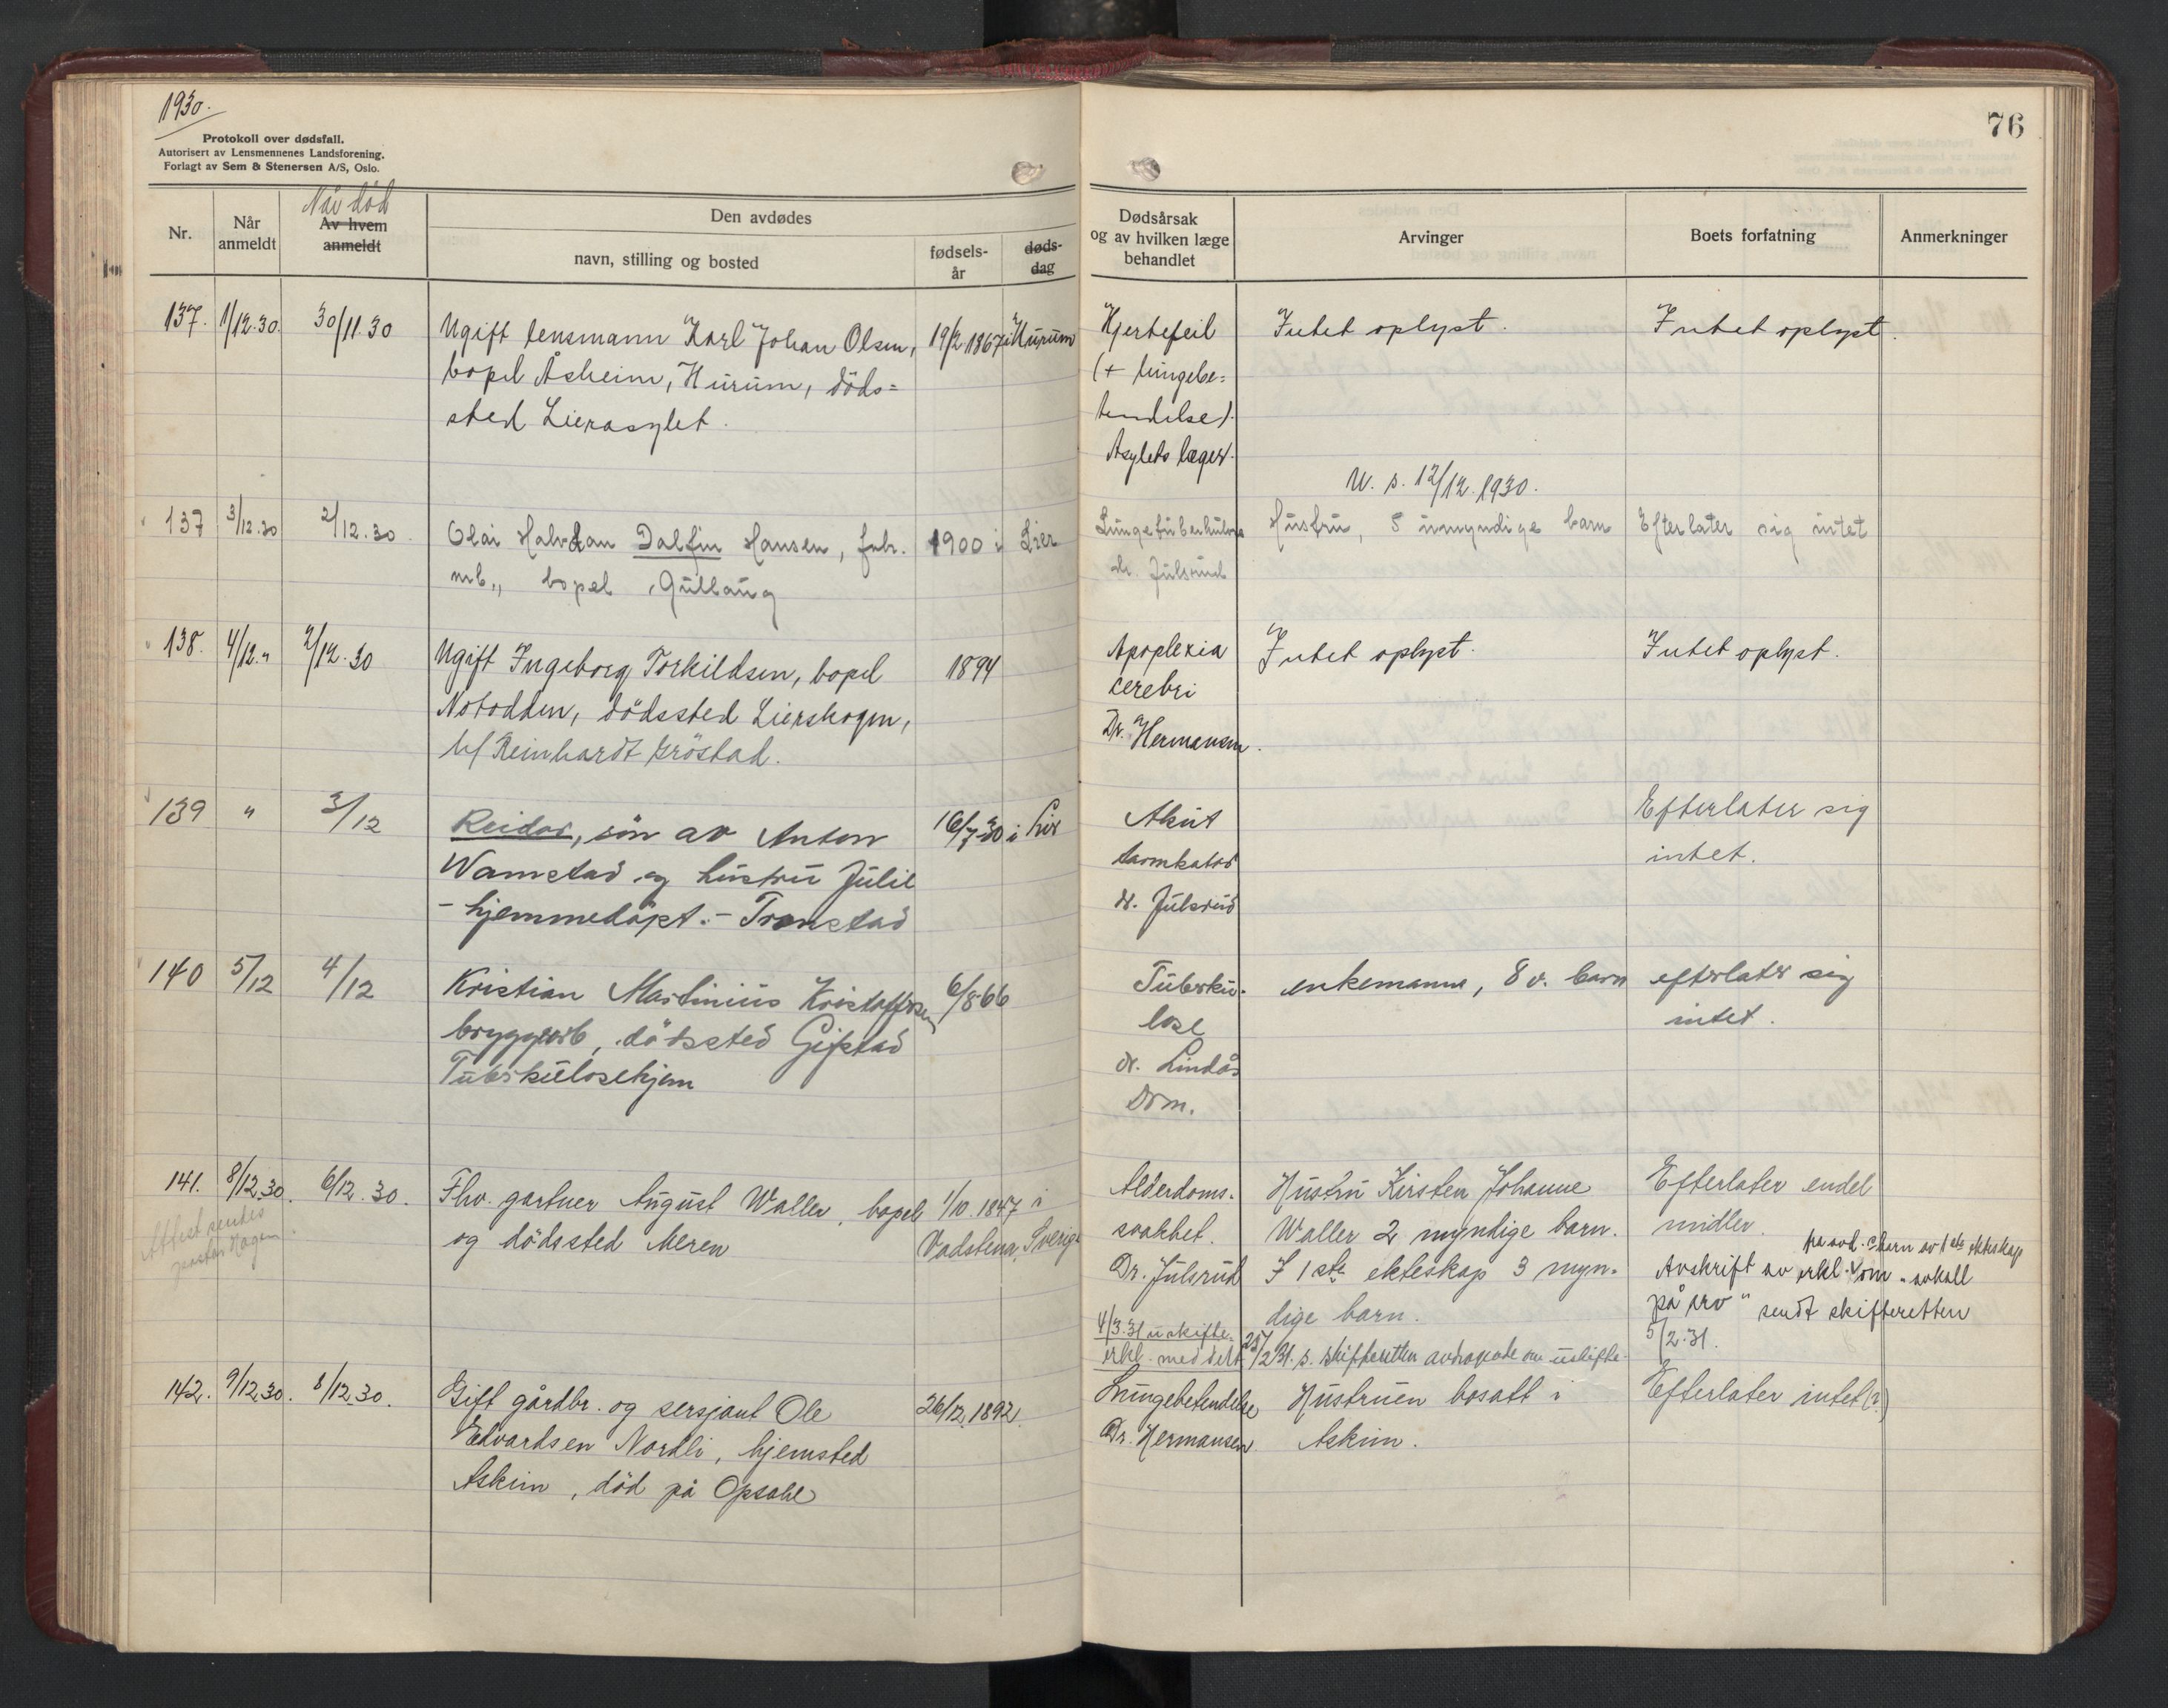 1930.
Protokoll over dødsfall.
Autorisert av Lensmennenes Landsforening.
Forlagt av Sem & Stenersen A/S, Oslo.
76
Nr.
Når anmeldt
Når död
Av hvem anmeldt
Den avdødes
navn, stilling og bosted
fødsels-år
døds-dag
Dødsårsak og av hvilken læge behandlet
Arvinger
Boets forfatning
Anmerkninger
137. 1/12.30. 30/11.30 Ugift lensmann Karl Johan Olsen, 19/2 1867 i Hurum Hjertefeil Intet oplyst. Intet oplyst.
bopel Åsheim, Hurum, döds= (+ lungebe=
sted Lierasylet. tendelse).
Asylets læger.
U. s. 12/12.1930.
137 3/12.30 2/12.30. Olai Halvdan Dalfin Hansen, fabr. 1900 i Lier Lungetuberkulose Hustru, 5 umyndige barn Efterlater sig intet
arb., bopel, Gullaug dr. Julsrud
138. 4/12.„ 2/12.30 Ugift Ingeborg Torkildsen, bopel 1894 Apoplexia Intet oplyst. Intet oplyst.
Notodden, dödssted Lierskogen, cerebri
h/ Reinhardt Gröstad. Dr. Hermansen.
139 „ 3/12 Reidar, sön av Anton 16/7-30 i Lier Akut Efterlater sig
Wamstad og hustru Julie tarmkatar intet.
- hjemmedöpt. - Tronstad dr. Julsrud
140 5/12 4/12 Kristian Martinius Kristoffersen 6/8-66 Tuberku- enkemann, 8 v. barn efterlater sig
bryggearb, dödssted Gifstad lose intet.
Tuberkulosehjem dr. Lindås
Drm.
141. 8/12.30. 6/12.30. Fhv. gartner August Waller, bopel 1/10.1847 i Alderdoms- Hustru Kirsten Johanne Efterlater endel
og dödssted Meren Vadstena, Sverige svakhet. Waller 2 myndige barn. midler.
Attest sendes
pastor Hagen.
Dr. Julsrud I 1ste ekteskap 3 myn-
dige barn.
fra avd. barn av 1ste ekteskap
Avskrift av erkl. om „avkall
på arv" sendt skifteretten
5/2.31.
4/3.31 uskifte-
erkl. meddelt
25/2 31. s. skifteretten
142. 9/12.30. 8/12.30. Gift gårdbr. og sersjant Ole 26/12.1892. Lungebetendelse Hustruen bosatt i Efterlater intet (?)
Edvardsen Nordli, hjemsted Dr. Hermansen Askim.
Askim, död på Opsahl